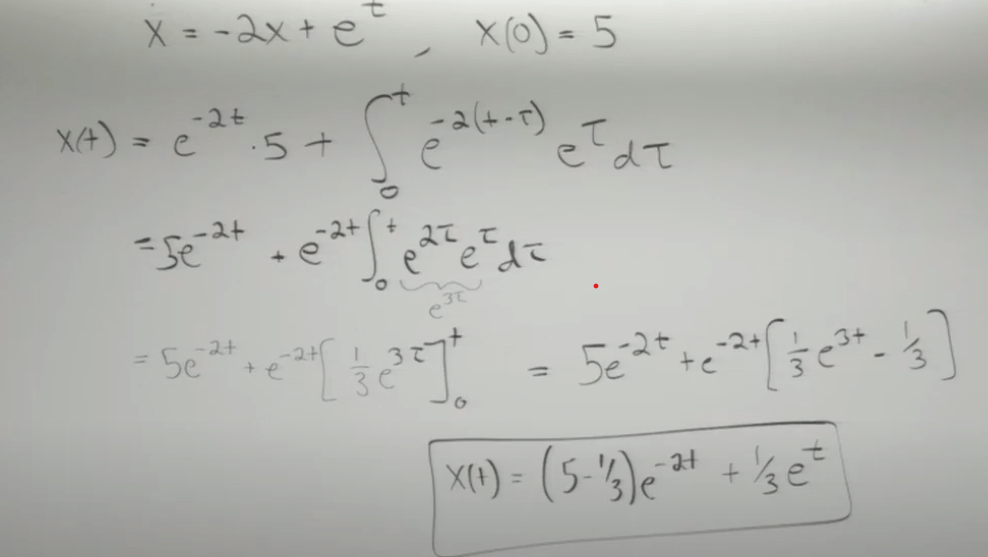 ẋ = -2x + e^t , x(0) = 5
x(t) = e^{-2t} · 5 + ∫_0^t e^{-2(t-τ)} e^τ dτ
= 5e^{-2t} + e^{-2t} ∫_0^t e^{2τ} e^τ dτ
e^{3τ}
= 5e^{-2t} + e^{-2t} [ 1/3 e^{3τ} ]_0^t = 5e^{-2t} + e^{-2t} [ 1/3 e^{3t} - 1/3 ]
x(t) = (5 - 1/3) e^{-2t} + 1/3 e^t